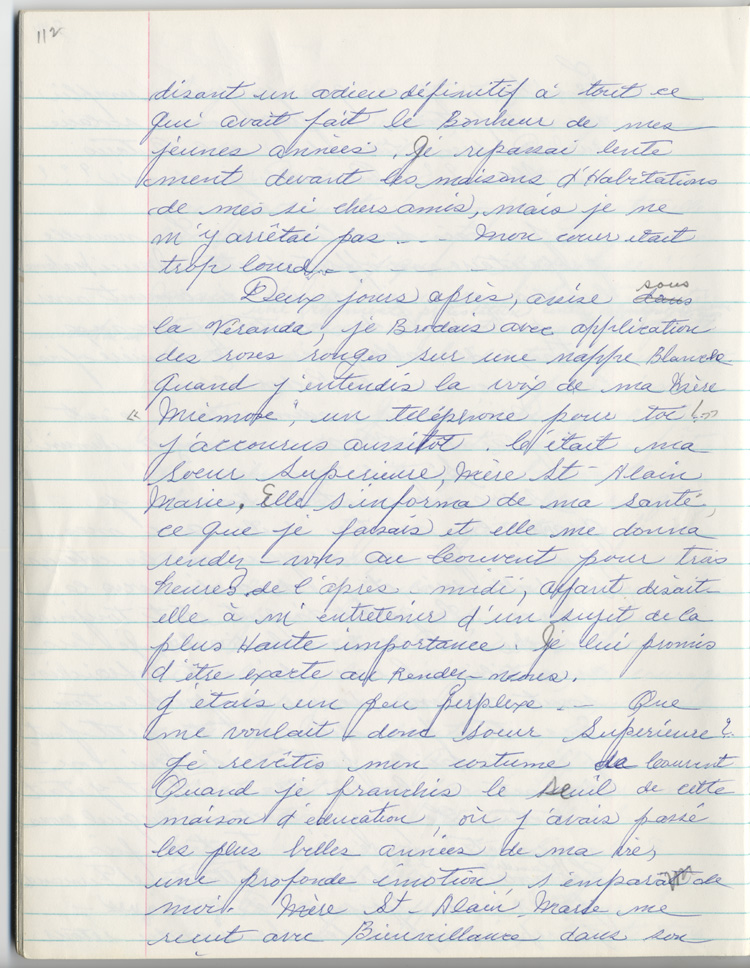 112
disant un adieu définitif à tout ce
qui avait fait le Bonheur de mes
jeunes années. Je repassai lente
ment devant les maisons d'Habitations
de mes si chers amis, mais je ne
m'y arrêtai pas --- Mon cœur était
trop lourd. - - - - -
Deux jours après, assise dans sous
la Véranda, je Brodais avec application
des roses rouges sur une nappe Blanche
Quand j'entendis la voix de ma Mère
« Mièmose", un téléphone pour toi !»
j'accourus aussitôt. C'était ma
Soeur Supérieure, Mère St-Alain
Marie. Elle s'informa de ma santé,
ce que je faisais et elle me donna
rendez-vous au Couvent pour trois
heures de l'après-midi, ayant disait-
elle à m'entretenir d'un sujet de la
plus Haute importance. Je lui promis
d'être exacte au Rendez-vous.
J'étais un peu perplexe --- Que
me voulait donc soeur Supérieure ?
Je revêtis mon costume de Couvent
Quand je franchis le Seuil de cette
maison d'éducation où j'avais passé
les plus belles années de ma vie,
une profonde émotion s'empara de
moi. Mère St-Alain Marie me
recut avec Bienveillance dans son